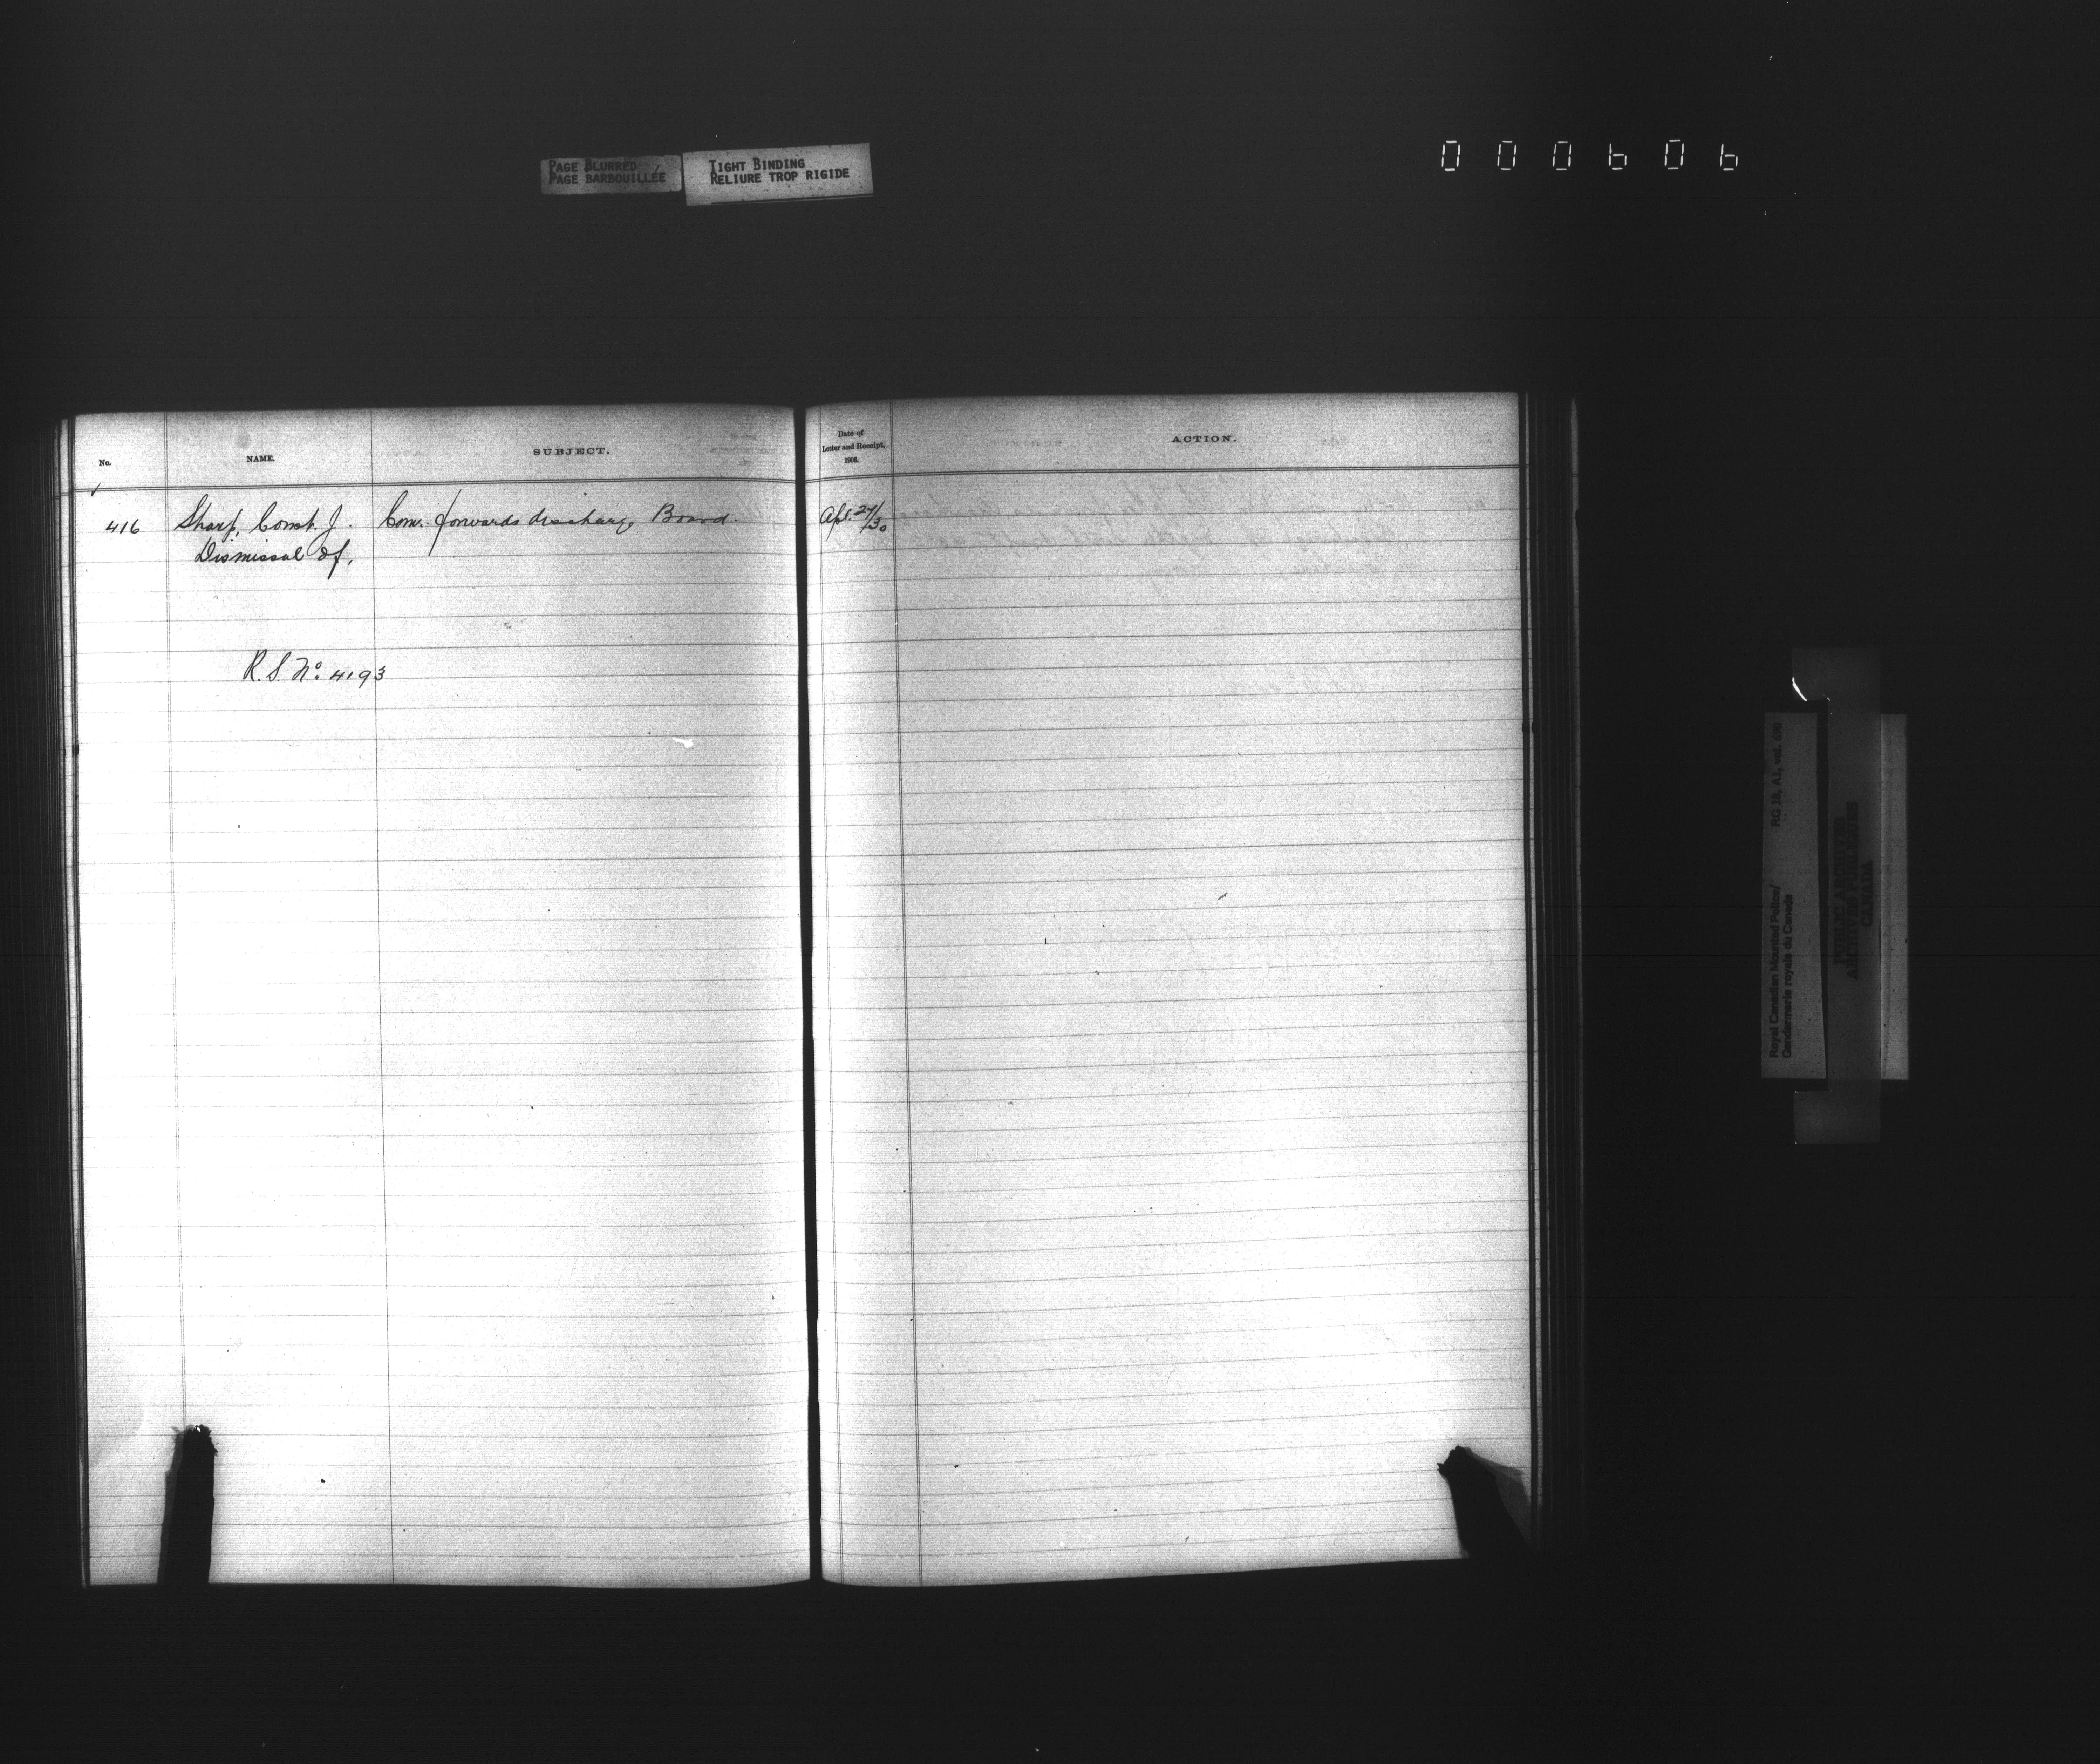 PAGE BLURRED
PAGE BARBOUILLÉE
TIGHT BINDING
RELIURE TROP RIGIDE
000606
No.
NAME.
SUBJECT.
Date of
Letter and Receipt,
1906.
ACTION.
416 Sharp, Const. J. Com. forwards discharge Board. Apl. 27/30
Dismissal of.
R.S. No. 4193
Royal Canadian Mounted Police/ RG 18, A1, vol. 698
Gendarmerie royale du Canada
PUBLIC ARCHIVES
ARCHIVES PUBLIQUES
CANADA